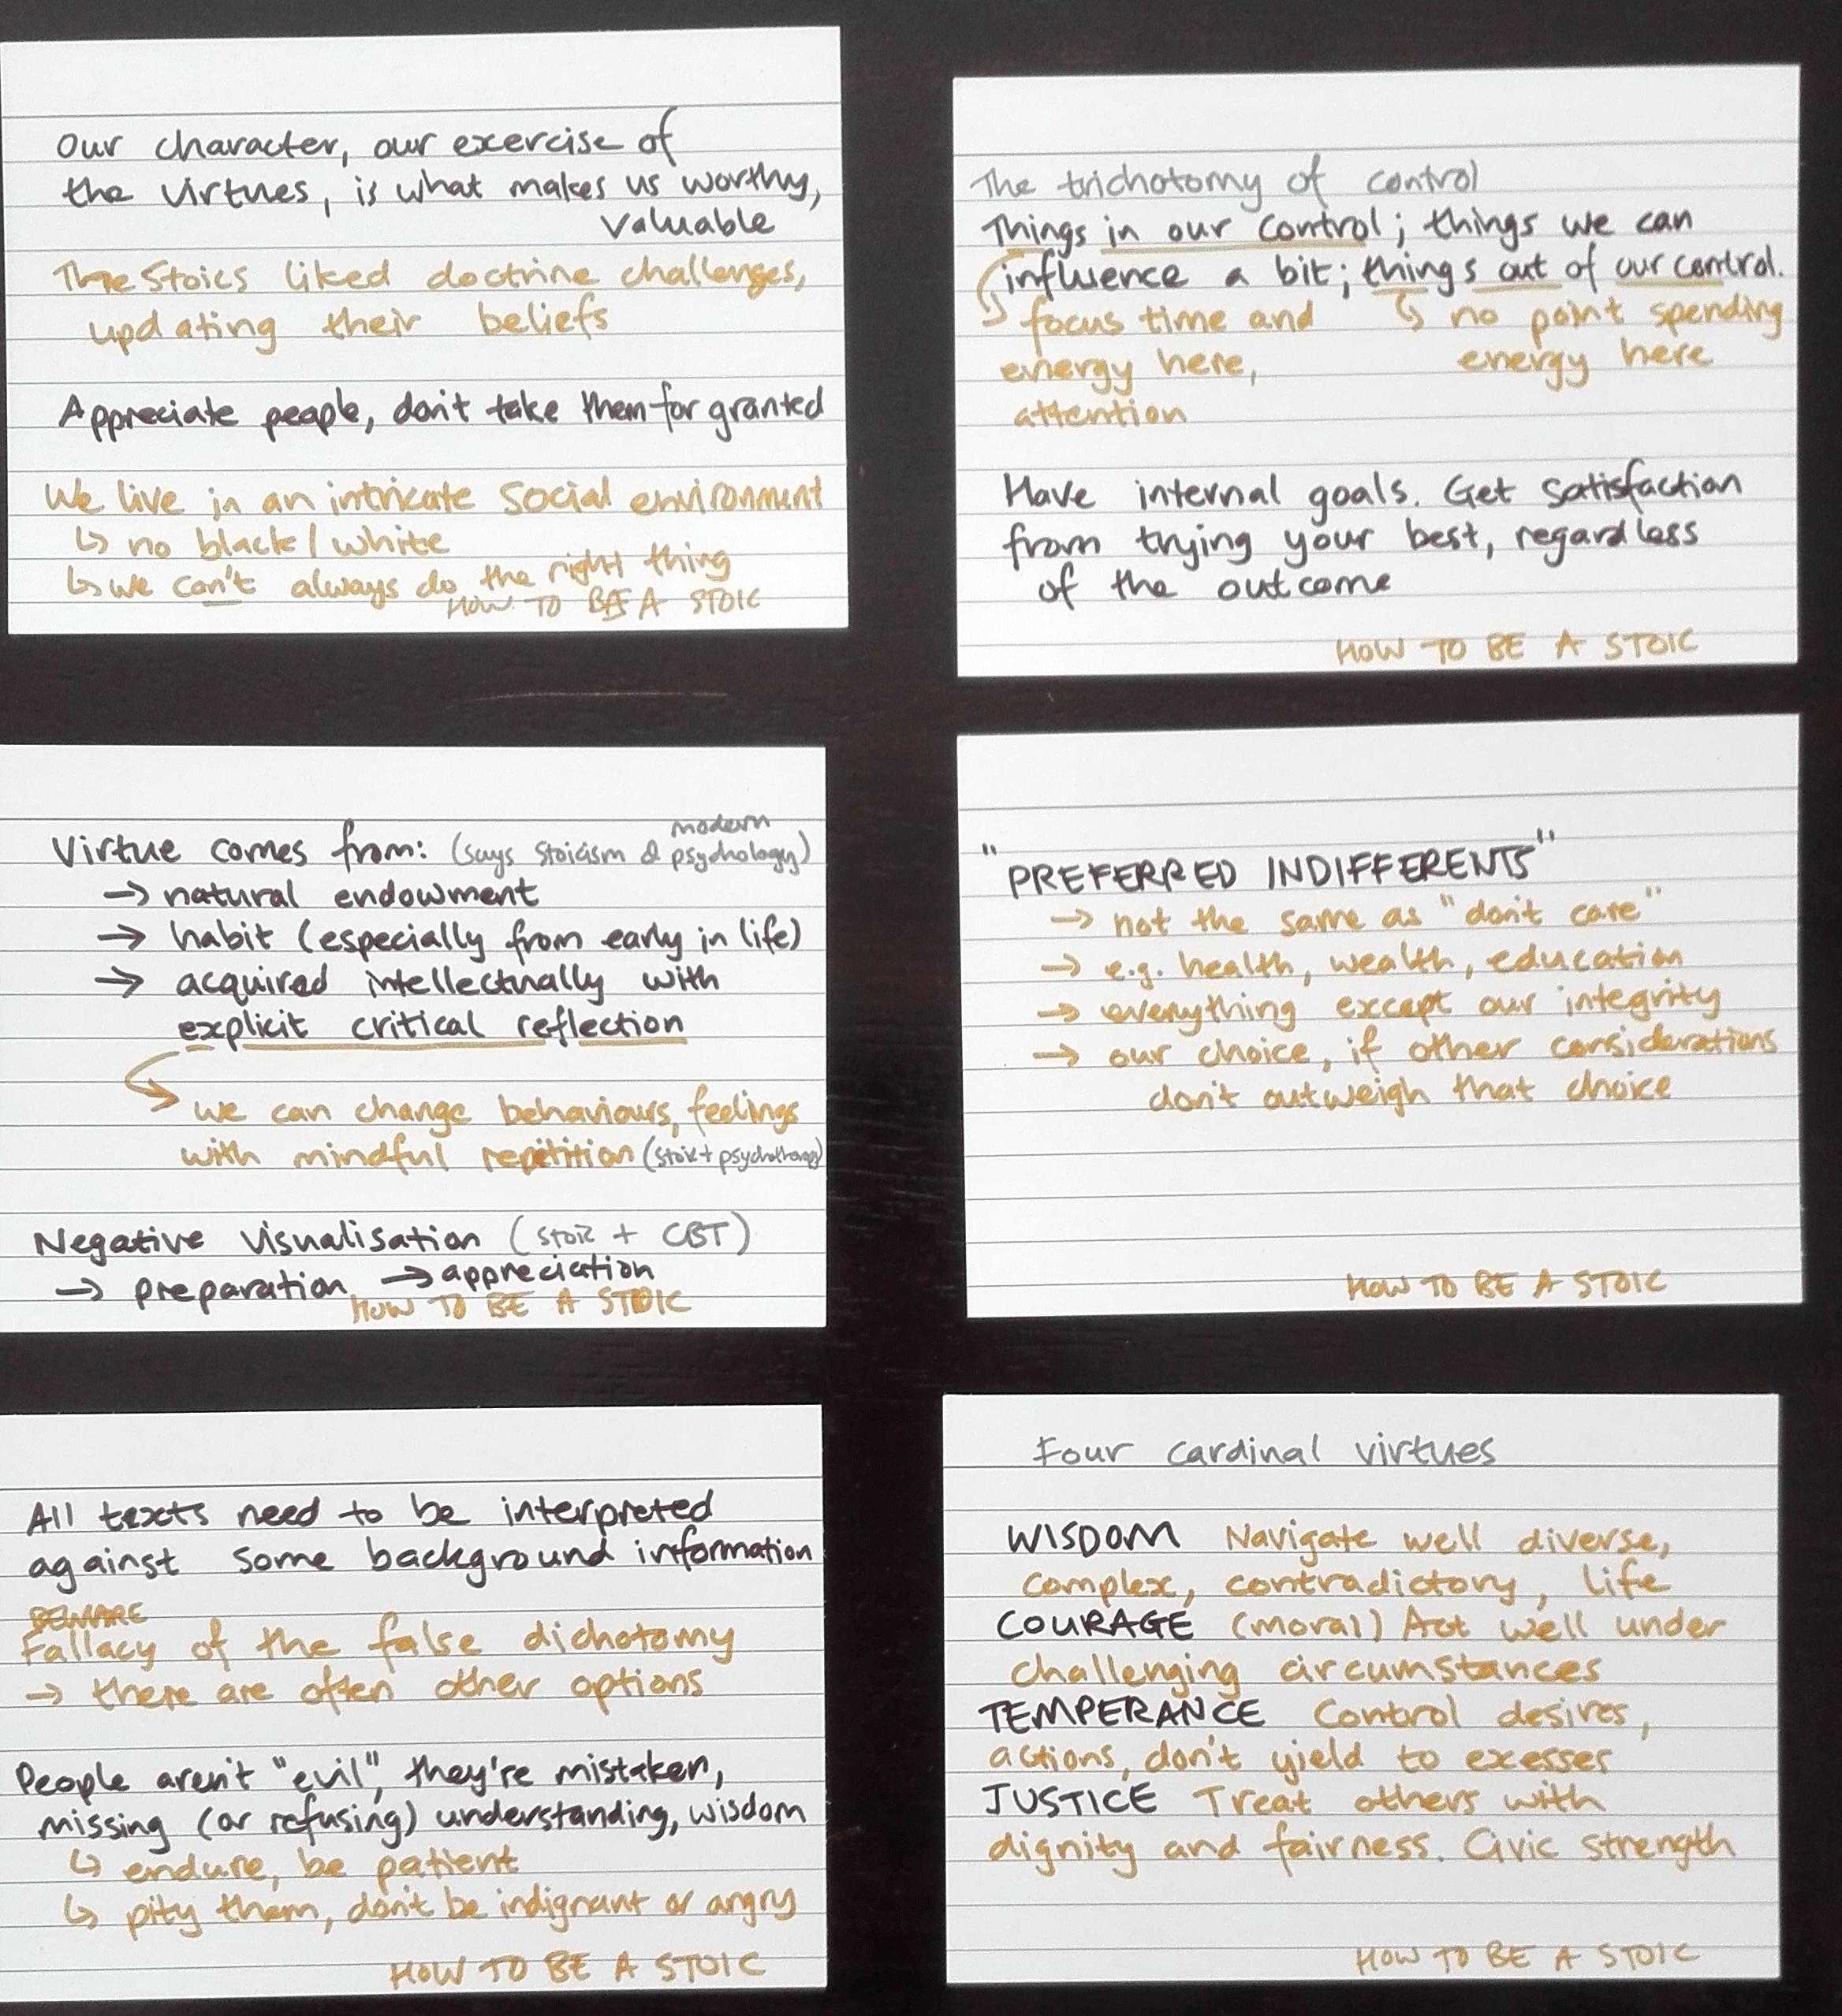 Our character, our exercise of
the virtues, is what makes us worthy,
valuable
The Stoics liked doctrine challenges,
updating their beliefs
Appreciate people, don't take them for granted
We live in an intricate social environment
↳ no black/white
↳ we can't always do the right thing
HOW TO BE A STOIC
The trichotomy of control
Things in our control; things we can
influence a bit; things out of our control.
↳ focus time and
energy here,
attention
↳ no point spending
energy here
Have internal goals. Get satisfaction
from trying your best, regardless
of the outcome
HOW TO BE A STOIC
Virtue comes from: (says Stoicism & modern psychology)
→ natural endowment
→ habit (especially from early in life)
→ acquired intellectually with
explicit critical reflection
↳ we can change behaviours, feelings
with mindful repetition (Stoic + psychotherapy)
Negative visualisation (Stoic + CBT)
→ preparation → appreciation
HOW TO BE A STOIC
"PREFERRED INDIFFERENTS"
→ not the same as "don't care"
→ e.g. health, wealth, education
→ everything except our integrity
→ our choice, if other considerations
don't outweigh that choice
HOW TO BE A STOIC
All texts need to be interpreted
against some background information
BEWARE
Fallacy of the false dichotomy
→ there are often other options
People aren't "evil", they're mistaken,
missing (or refusing) understanding, wisdom
↳ endure, be patient
↳ pity them, don't be indignant or angry
HOW TO BE A STOIC
Four cardinal virtues
WISDOM Navigate well diverse,
complex, contradictory, life
COURAGE (moral) Act well under
challenging circumstances
TEMPERANCE Control desires,
actions, don't yield to excesses
JUSTICE Treat others with
dignity and fairness. Civic strength
HOW TO BE A STOIC